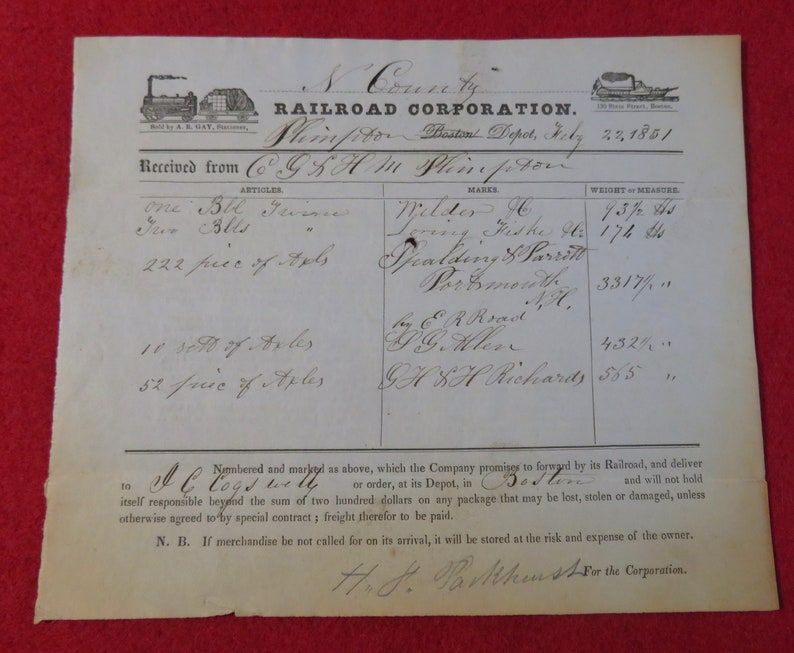 N County
RAILROAD CORPORATION.
Sold by A. B. GAY, Stationer,
130 State Street, Boston.
Plimpton Boston Depot, Feby 22, 1851
Received from C G & H M Plimpton
ARTICLES. MARKS. WEIGHT OR MEASURE.
one Bbl Wilder 93 1/2 lbs
Two Bbls " Loring Fiske 174 lbs
222 piec of Axls Spalding & Parrott
Portsmouth 3317 1/2 "
N.H.
by E R Road
10 setts of Axles S G Allen 432 1/2 "
52 piec of Axles G H & H Richards 565 "
Numbered and marked as above, which the Company promises to forward by its Railroad, and deliver
to J C Cogswell or order, at its Depot, in Boston and will not hold
itself responsible beyond the sum of two hundred dollars on any package that may be lost, stolen or damaged, unless
otherwise agreed to by special contract ; freight therefor to be paid.
N. B. If merchandise be not called for on its arrival, it will be stored at the risk and expense of the owner.
H. F. Parkhurst For the Corporation.